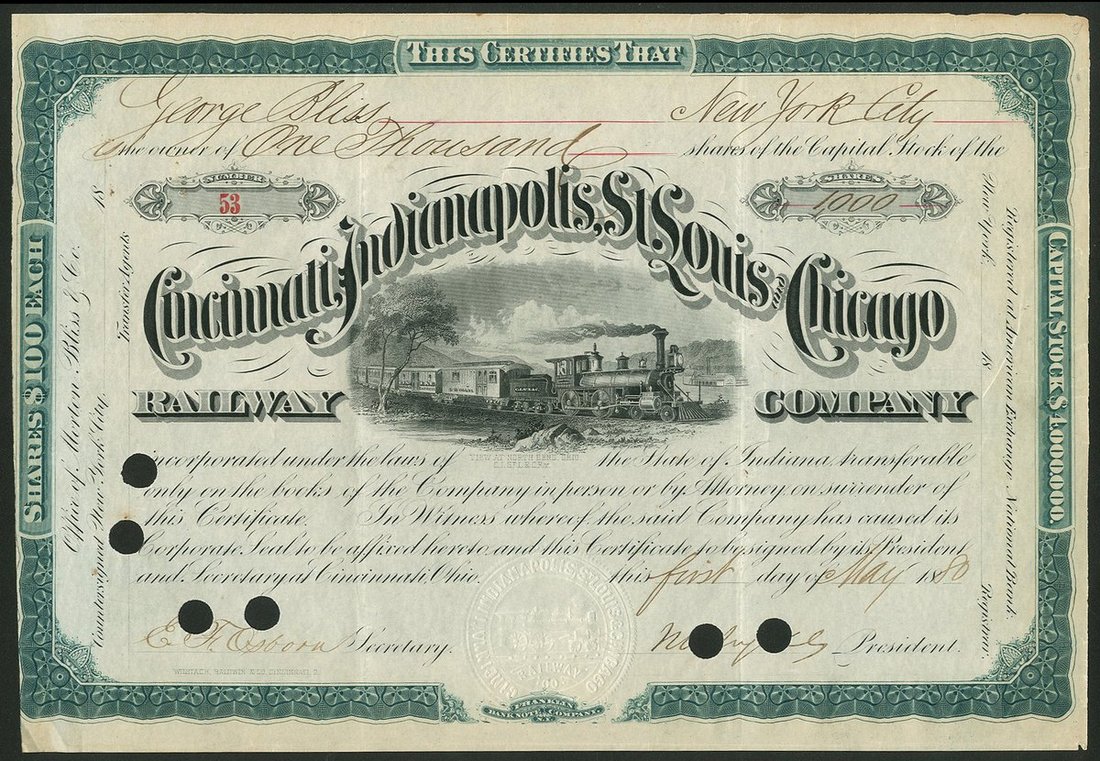 THIS CERTIFIES THAT
George Bliss New York City
is the owner of One Thousand shares of the Capital Stock of the
NUMBER
53
SHARES
1000
Cincinnati, Indianapolis, St. Louis and Chicago
RAILWAY COMPANY
VIEW AT NORTH BEND OHIO
C.I.ST.L.& C.R'W.
incorporated under the laws of the State of Indiana, transferable
only on the books of the Company in person or by Attorney on surrender of
this Certificate. In Witness whereof the said Company has caused its
Corporate Seal to be affixed hereto and this Certificate to be signed by its President
and Secretary at Cincinnati Ohio, this first day of May 1880
E. F. Osborn Secretary. President.
WILSTACH, BALDWIN & CO. CINCINNATI, O.
FRANKLIN
BANK NOTE COMPANY
N.Y.
SHARES $100 EACH
CAPITAL STOCK $4,000,000.
Countersigned
Office of Morton, Bliss & Co.
New York City.
Transfer Agents
18
New York, 18
Registered at American Exchange National Bank.
Registrar.
CINCINNATI, INDIANAPOLIS, ST. LOUIS & CHICAGO
RAILWAY
CO.